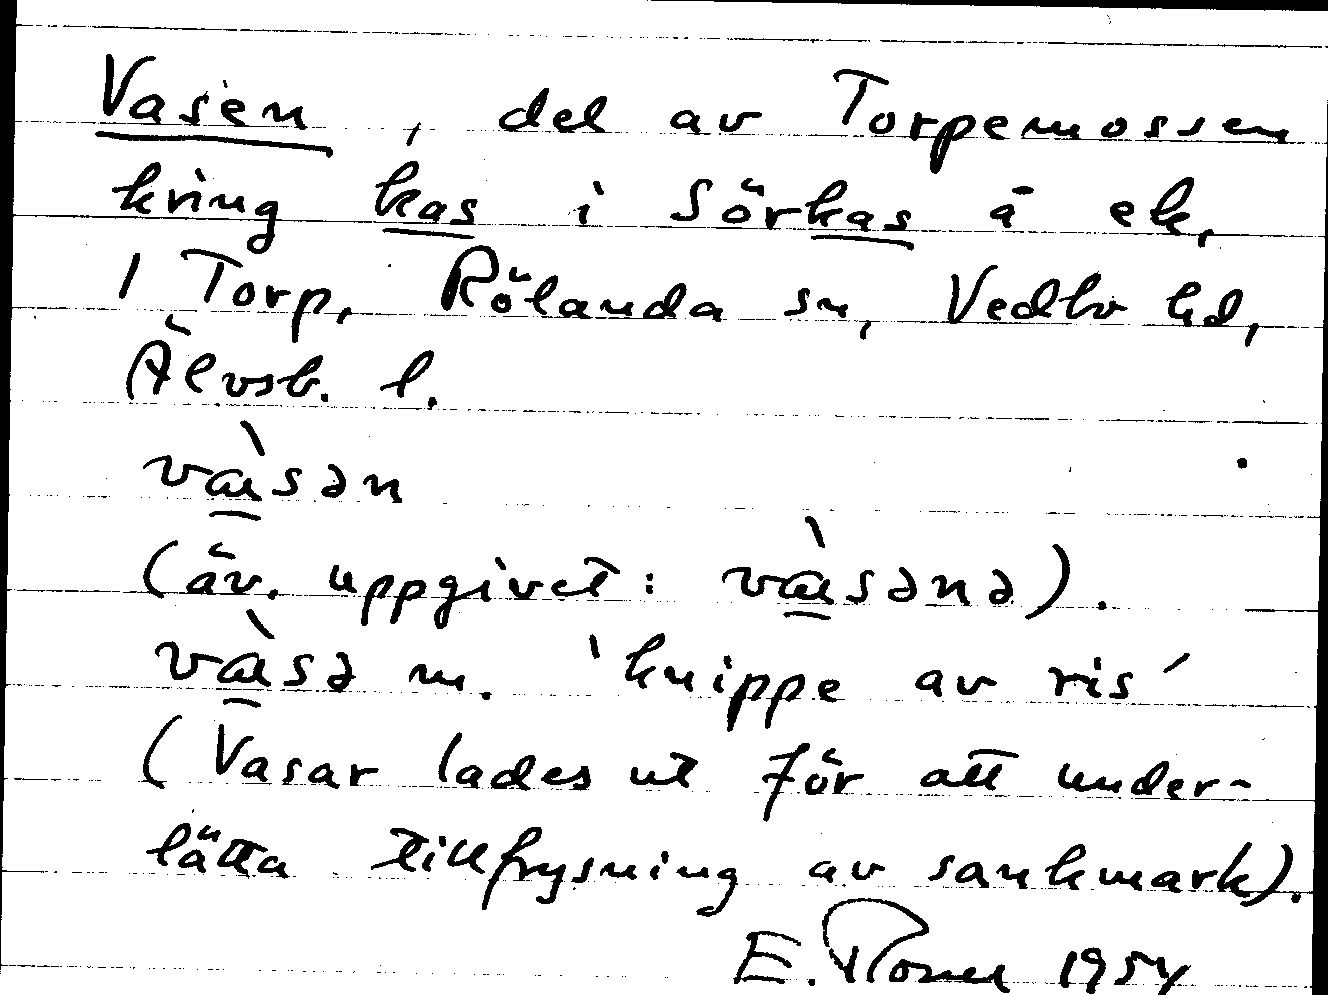 Vasen, del av Torpemossen
kring kas i Sörkas å ek,
1 Torp, Rölanda sn, Vedbo hd,
Älvsb. l.
và̱sən
(äv. uppgivet: và̱sənə).
và̱sə m. 'knippe av ris'
(Vasar lades ut för att under-
lätta tillfrysning av sankmark).
E. 1954